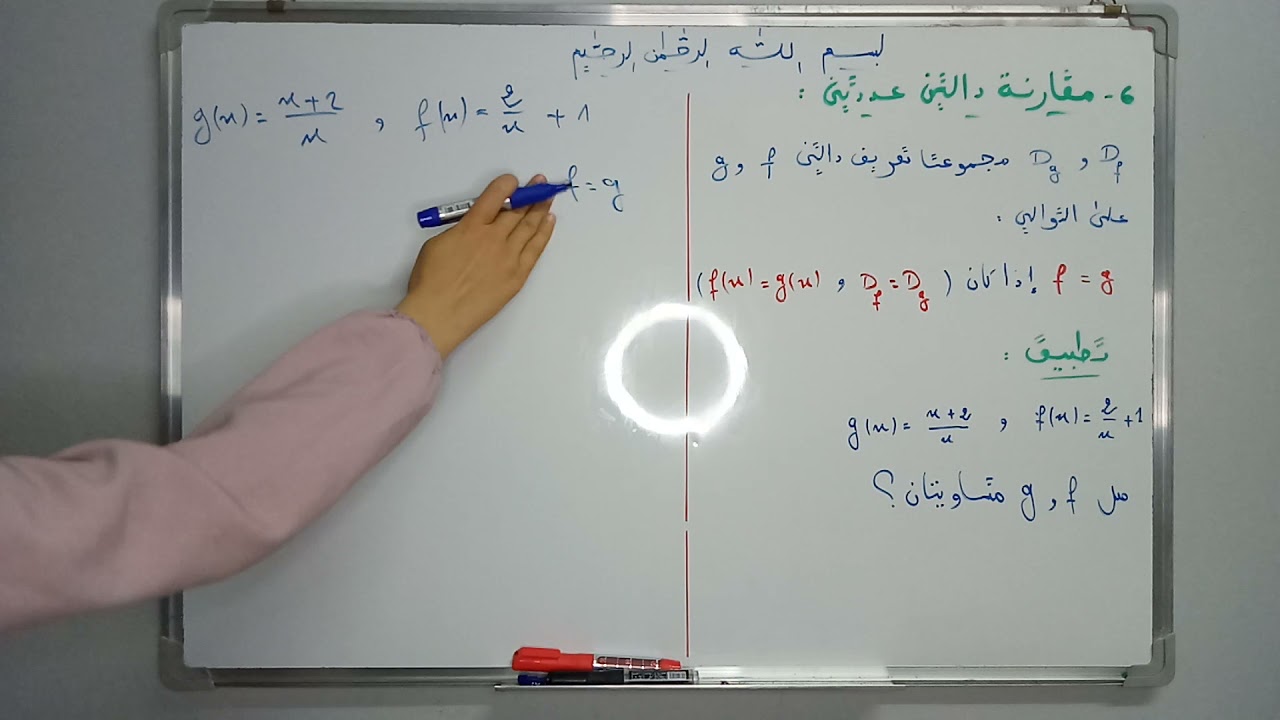 بسم الله الرحمن الرحيم
6- مقارنة دالتين عدديتين :
D_f و D_g مجموعتا تعريف دالتين f و g
على التوالي :
f = g إذا كان (D_f = D_g و f(x) = g(x))
تطبيق :
f(x) = 2/x + 1 , g(x) = x+2/x
هل f و g متساويتان ؟
f(x) = 2/x + 1 , g(x) = x+2/x
f = g